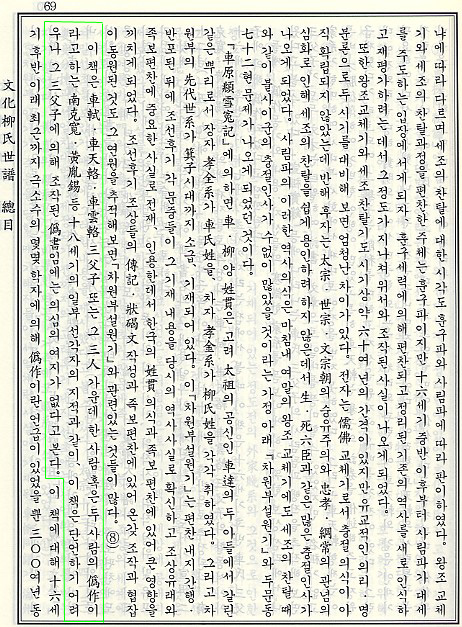 69
나에 따라 다르며 세조의 찬탈에 대한 시각도 훈구파와 사림파에 따라 판이하였다. 왕조 교체
기와 세조의 찬탈과정을 편찬한 주체는 훈구파이지만 十六세기 중반 이후부터 사림파가 대세
를 주도하는 입장에 서게 되자, 훈구세력에 의해 편찬되고 정리된 기존의 역사를 새로 인식하
고 재평가하려는 데서 그 정도가 지나쳐 위서와 조작된 사실이 나오게 되었다.
또한 왕조교체기와 세조 찬탈기도 시기상 약 六十여년의 간격이 있지만 유교적인 의리·명
분론으로 두 시기를 대비해 보면 엄청난 차이가 있다. 전자는 儒佛 교체기로서 충절 의식이 아
직 확립되지 않았는데 반해 후자는 太宗·世宗·文宗朝의 숭유주의와 忠孝·綱常의 관념의
심화로 인해 세조의 찬탈을 쉽게 용인하려 하지 않은데서 生·死六臣과 같은 많은 충절인사가
나오게 되었다. 사림파의 이러한 역사의식은 마침내 여말의 왕조 교체기에도 세조의 찬탈 때
와 같이 불사이군의 충절인사가 수없이 많았을 것이라는 가정 아래 「차원부설원기」와 두문동
七十二현 문제가 나오게 되었던 것이다.
「車原頫雪寃記」에 의하면 車·柳 양 姓貫은 고려 太祖의 공신인 車達의 두 아들에서 갈린
같은 뿌리로서 장자 孝全系가 車氏姓을, 차자 孝金系가 柳氏姓을 각각 취하였다. 그리고 차
원부의 先代世系가 箕子시대까지 소급, 기재되어 있다. 이 「차원부설원기」는 편찬 내지 간행·
반포된 뒤에 조선후기 각 문중들이 그 기재 내용을 당시의 역사사실로 확신하고 조상유래와
족보편찬에 중요한 사실로 전재, 인용한데서 한국의 姓貫의식과 족보 편찬에 있어 큰 영향을
끼치게 되었다. 조선후기 조상들의 傳記·狀碣文 작성과 족보편찬에 있어 온갖 조작과 협잡
이 동원된 것도 그 연원을 추적해 보면 「차원부설원기」와 관련있는 것들이 많다. ⑧
이 책은 車軾·車天輅·車雲輅 三父子 또는 그 三人 가운데 한 사람 혹은 두 사람의 僞作이
라고 하는 南克寬·黃胤錫 등 十八세기의 일부 선각자의 지적과 같이, 이 책은 단언하기 어려
우나 그 三父子에 의해 조작된 僞書임에는 의심의 여지가 없다고 본다. 이 책에 대해 十六세
기 후반 이래 최근까지 극소수의 몇몇 학자에 의해 僞作이란 언급이 있었을 뿐 三○○여년 동
文化柳氏世譜 總目